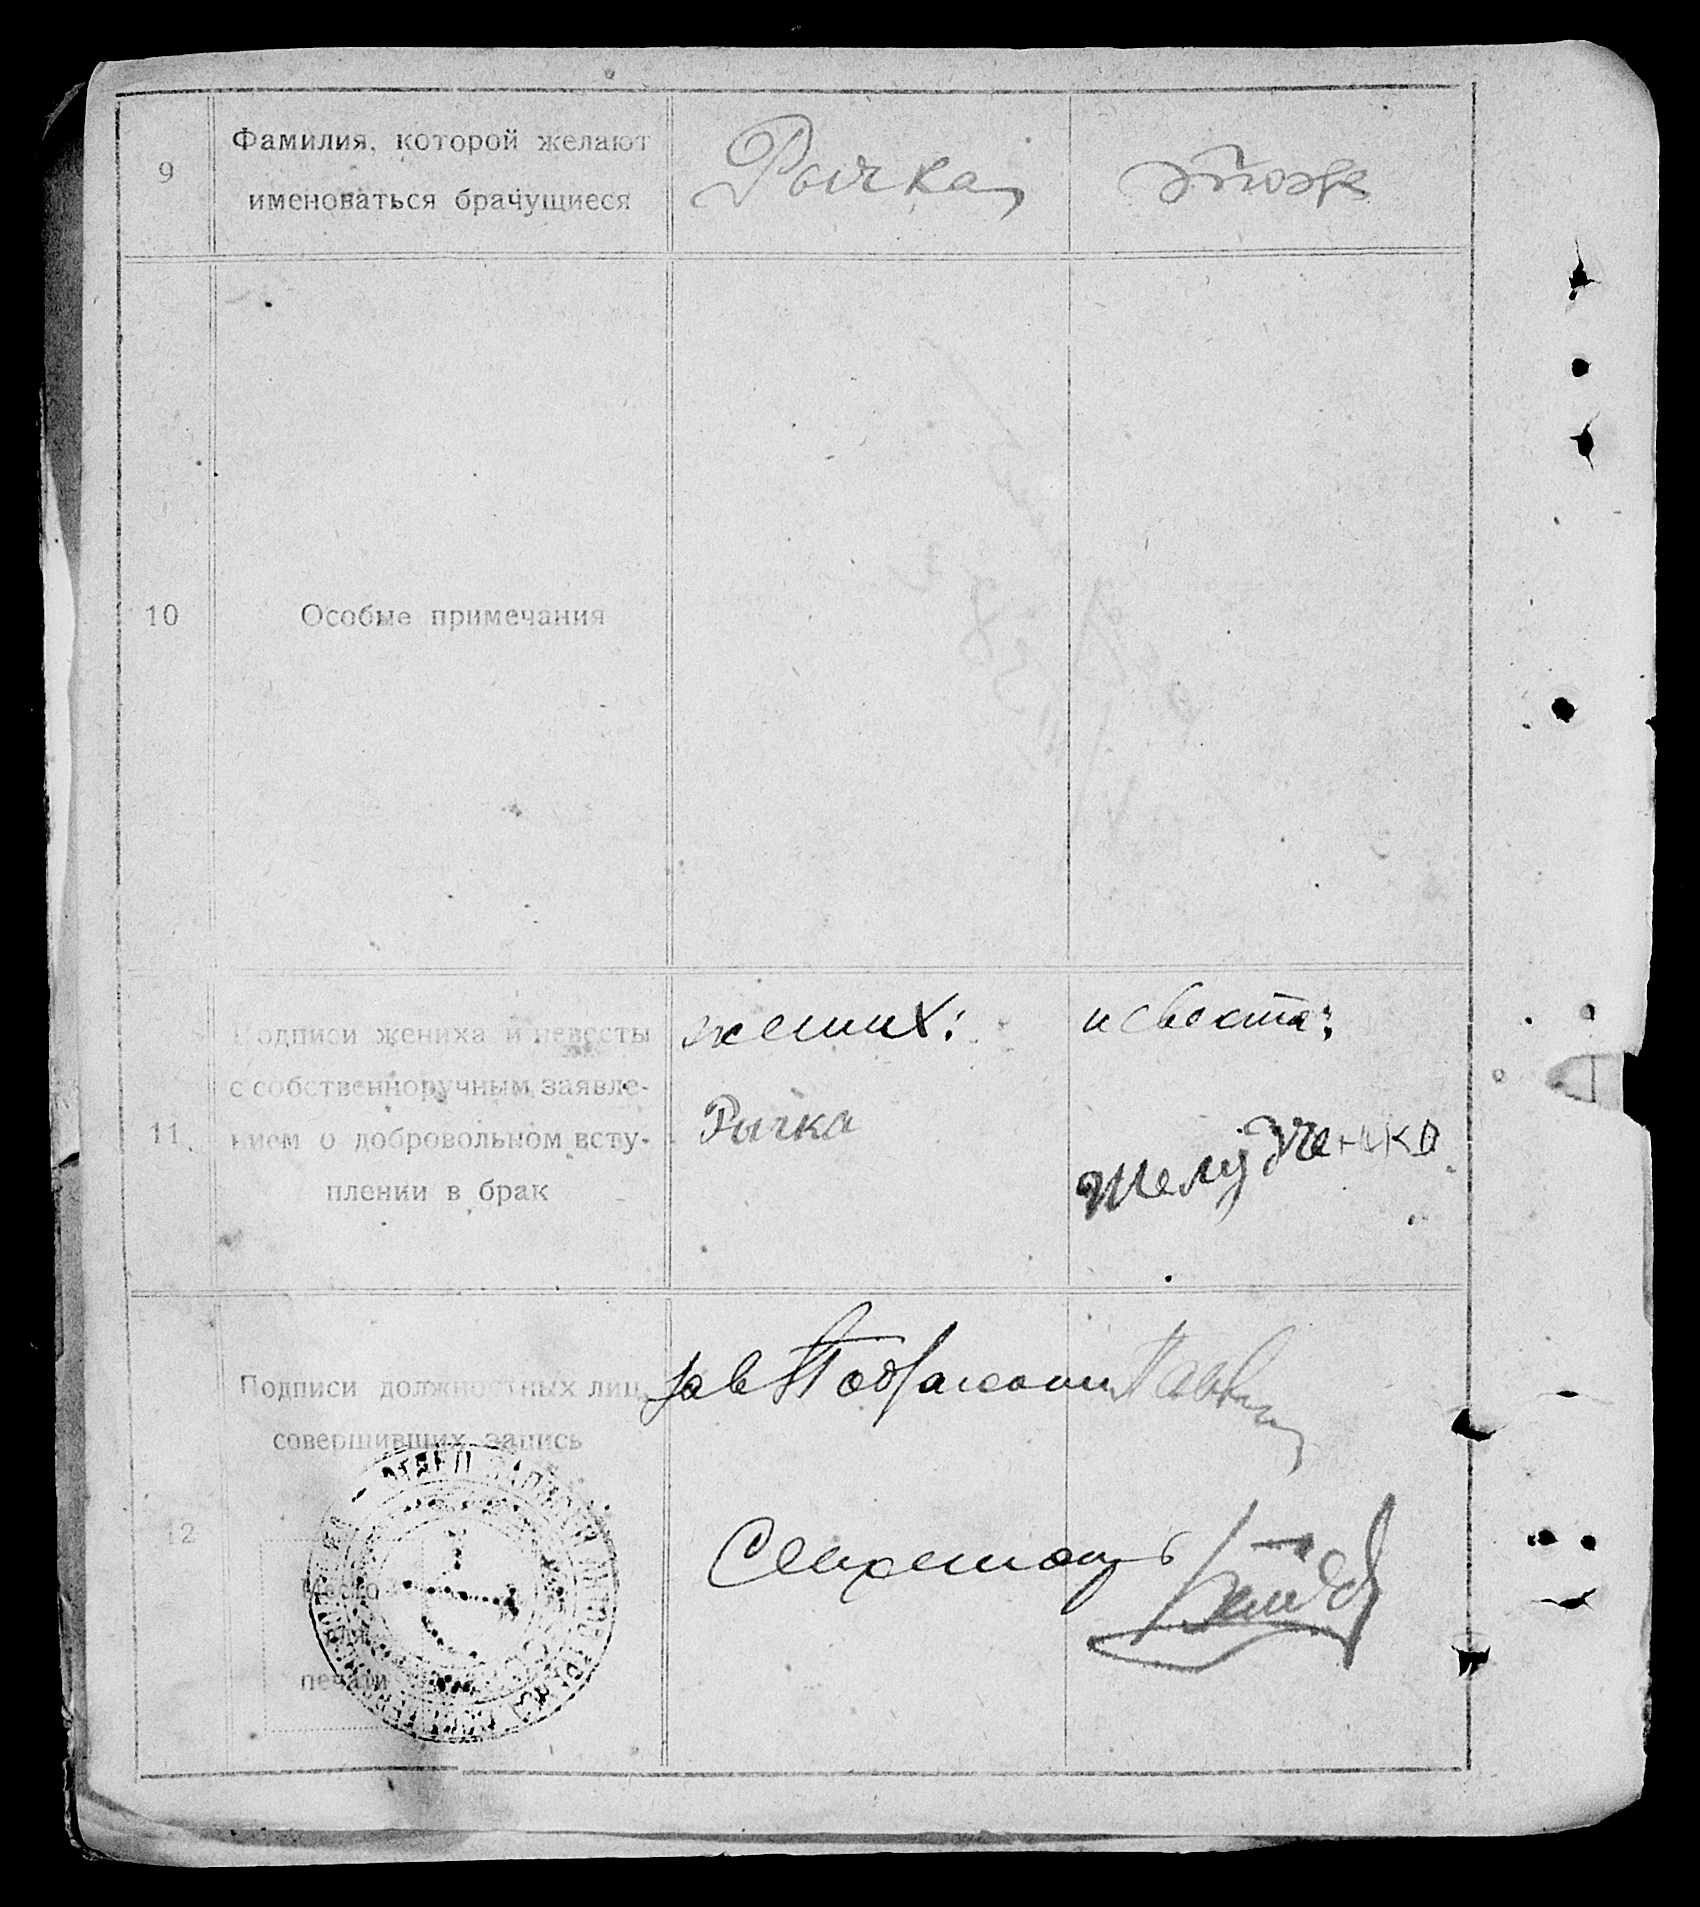 9
Фамилия, которой желают
именоваться брачущиеся
Рычка
10
Особые примечания
11
Подписи жениха и невесты
с собственноручным заявле-
нием о добровольном всту-
плении в брак
жених:
Рычка
невеста:
Желудченко
12
Подписи должностных лиц,
совершивших запись
Место
для
печати
зав
Секретарь